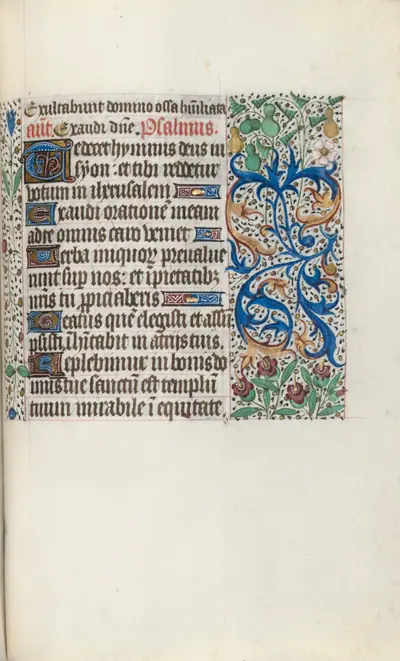 Exultabunt domino ossa hu̅iliata
an̅t. Exaudi dn̅e. Psalmus.
Te decet hymnus deus in
syon: et tibi reddetur
votum in iherusalem
Exaudi oratione̅ meam
ad te omnis caro veniet
Verba iniquoꝝ preualue
runt sup nos: et i̅pietatib͛
nr̅is tu ꝓpiciaberis
Beatus que̅ elegisti et assu̅
psisti i̅habitabit in atrijs tuis.
Replebimur in bonis do
mus tue sanctu̅ est templu̅
tuum mirabile i̅ equitate